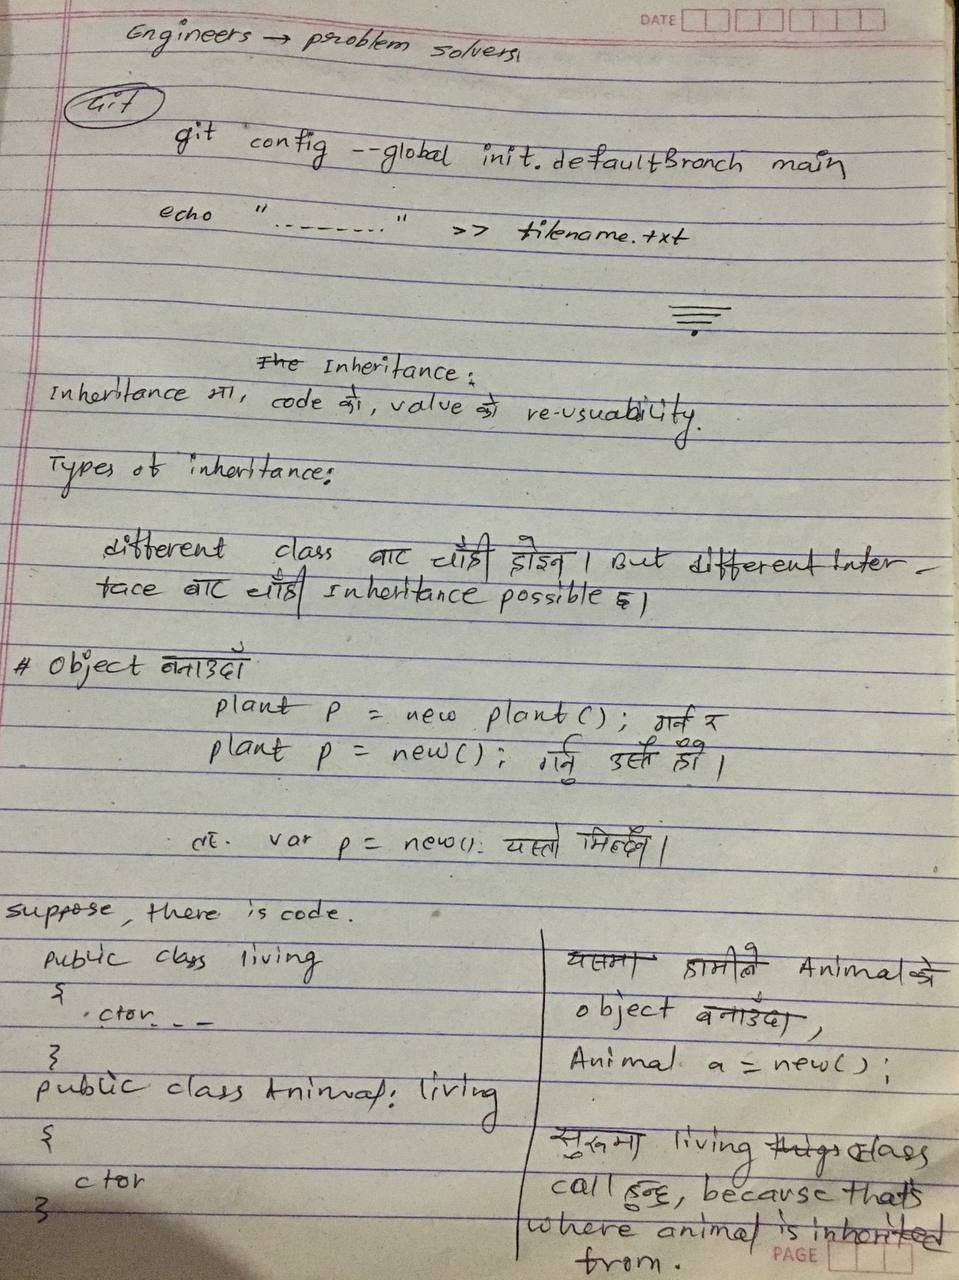 DATE
Engineers → problem solvers
Git
git config --global init.defaultBranch main
echo "---------" >> filename.txt
The Inheritance:
Inheritance मा, code को, value को re-usuability.
Types of inheritance:
different class बाट चाँही होइन। But different Inter-
face बाट चाँही Inheritance possible छ।
# Object बनाउदाँ
plant p = new plant(); गर्न र
plant p = new(); गर्नु उस्तै हो।
var p = new(); यस्तो मिल्दैन।
suppose, there is code.
public class living
{
ctor---
}
public class Animal: living
{
ctor
}
यसमा हामीले Animal को
object बनाउँदा,
Animal a = new();
सुरुमा living things class
call हुन्छ, because that's
where animal is inherited
from.
PAGE